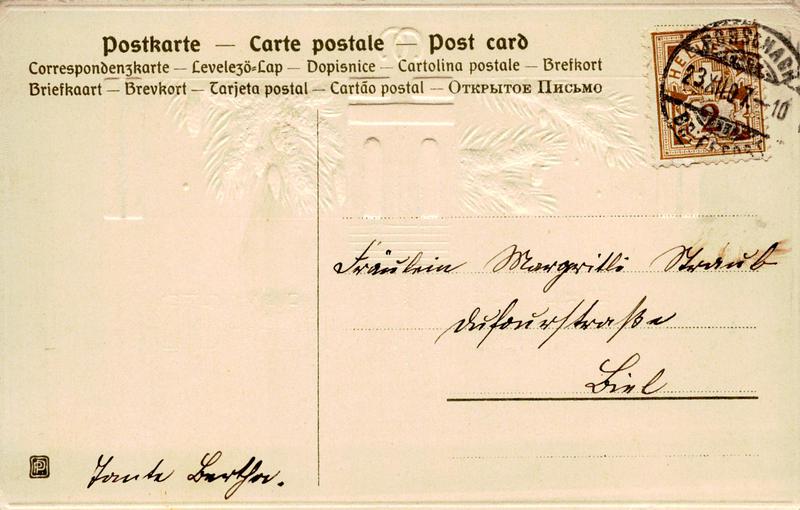 Postkarte — Carte postale — Post card
Correspondenzkarte — Levelező-Lap — Dopisnice — Cartolina postale — Brefkort
Briefkaart — Brevkort — Tarjeta postal — Cartão postal — Открытое Письмо
HEL
2
Fräulein Margritli Straub
Dufourstraße
Biel
Tante Bertha.